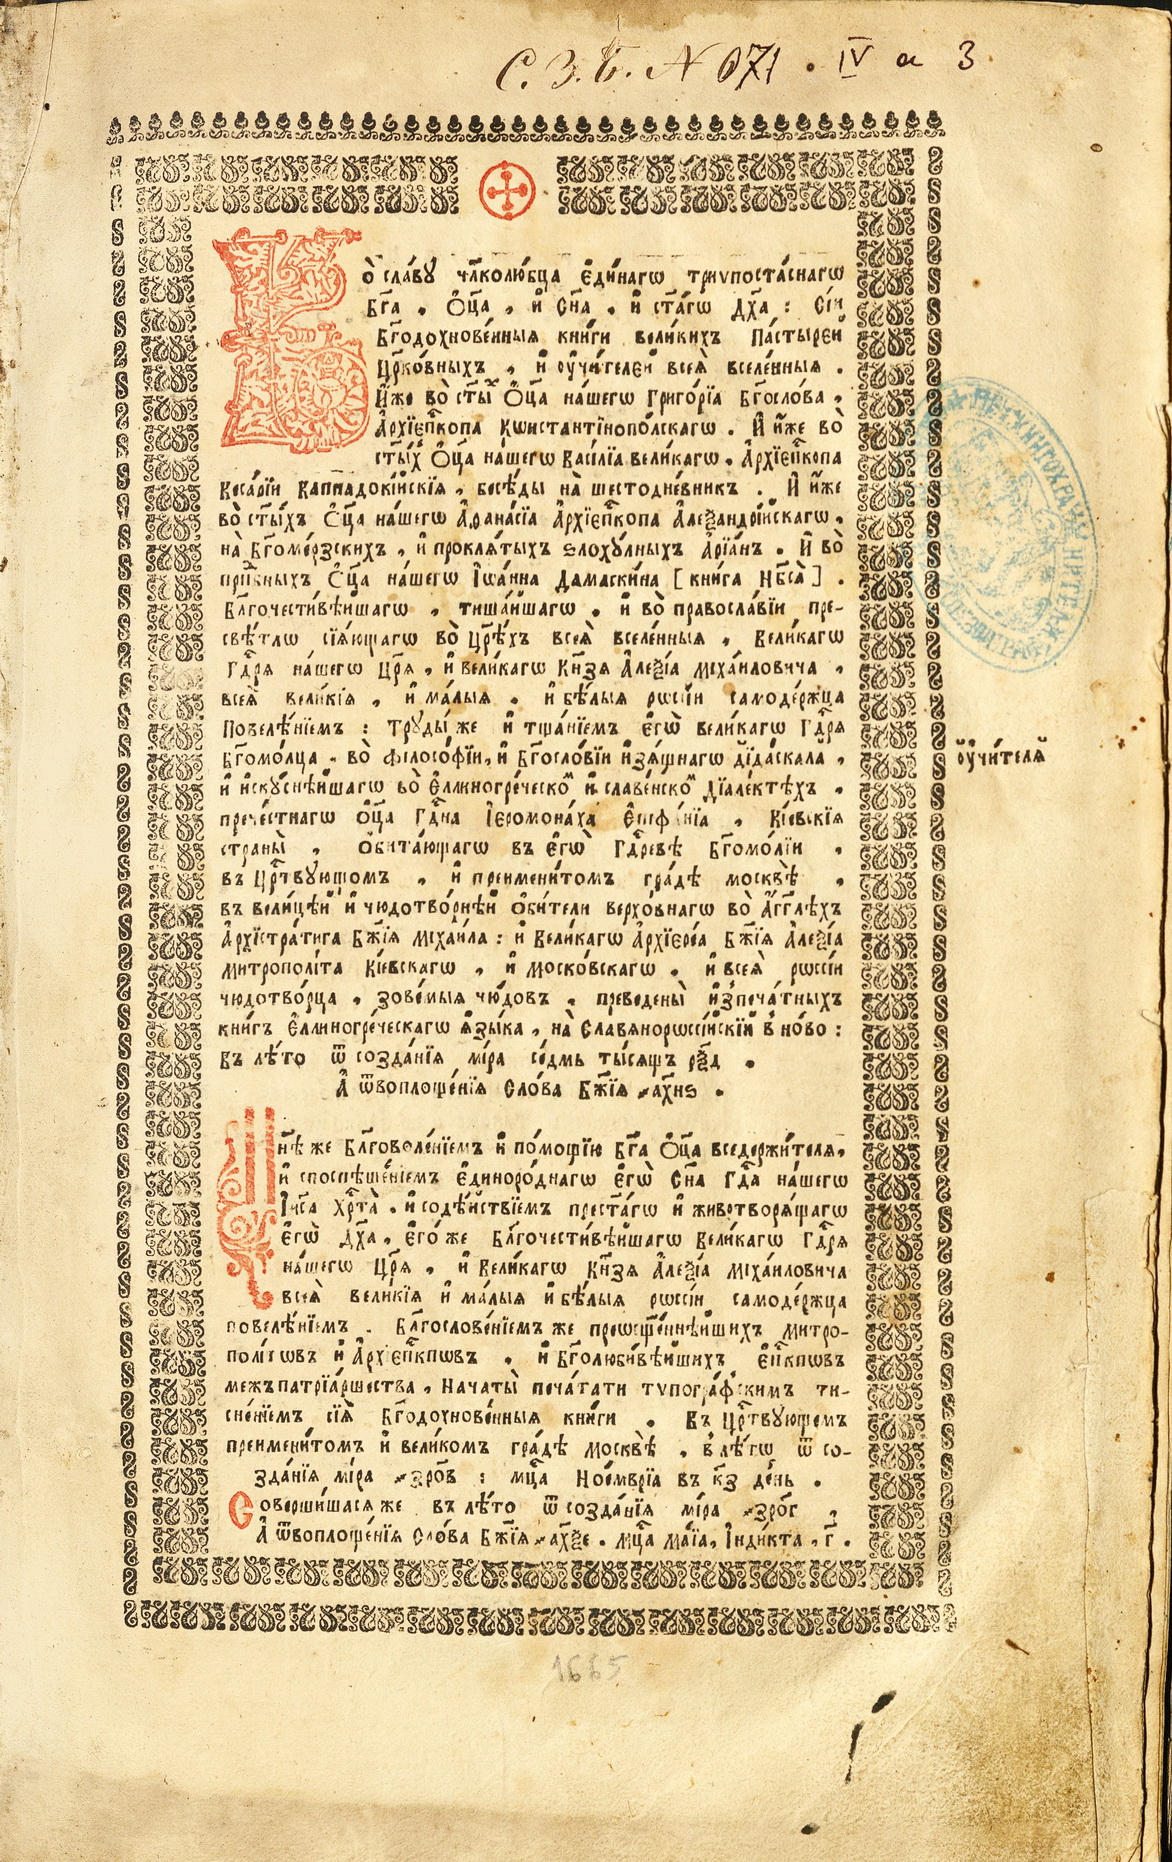 С. З. Б. № 671 . IV а 3
Во̀ сла́ву чл҃колю́бца є҆ди́нагѡ трїѵпоста́снагѡ
Бг҃а . Ѻ҆ц҃а , и҆ Сн҃а . и҆ ст҃а́гѡ Дх҃а : Сїи
Бг҃одохнове́нныя кни́ги вели́кихъ Па́стырей
Цр҃ко́вныхъ , и҆ ᲂу҆чи́телей всея̀ вселе́нныя .
И҆́же во̀ ст҃ы́хъ Ѻ҆ц҃а на́шегѡ Григо́рїа Бг҃осло́ва ,
А҆рхїєп҃копа Кѡнстантїнопо́лскагѡ . И҆ и҆́же во̀
ст҃ы́хъ Ѻ҆ц҃а на́шегѡ Васи́лїа вели́кагѡ . А҆рхїєп҃копа
Кеса́рїи Каппадокі́йскїя , бесѣ́ды на̀ шестодне́вникъ . И҆ и҆́же
во̀ ст҃ы́хъ Ѻ҆ц҃а на́шегѡ А҆ѳана́сїа А҆рхїєп҃копа А҆леѯандрі́йскагѡ ,
на̀ Бг҃оме́рзскихъ , и҆ прокля́тыхъ ѕлоху́лныхъ А҆рїа́нъ . И҆ во̀
прп҃бныхъ Ѻ҆ц҃а на́шегѡ І҆ѡа́нна Дамаски́на [ кни́га Нб҃са̀ ] .
Бл҃гочести́вѣишагѡ , тиша́йшагѡ . и҆ во̀ правосла́вїи пре-
свѣ́тлѡ сїѧ́ющагѡ во̀ Цр҃ѣ́хъ всея̀ вселе́нныя , Вели́кагѡ
Гд҃ря на́шегѡ Цр҃я̀ , и҆ вели́кагѡ Кн҃зя А҆леѯі́а міха́иловича ,
всея̀ вели́кїя , и҆ ма́лыя . и҆ бѣ́лыя рѡссі́и самоде́ржца
Повелѣ́нїемъ : Труды́ же и҆ тща́нїемъ є҆гѡ̀ вели́кагѡ Гд҃ря
бг҃омо́лца . во̀ філосо́фїи , и҆ бг҃осло́вїи и҆зя́щнагѡ дїда́скала ,
ᲂу҆чи́теля
и҆ и҆ску́снѣйшагѡ во̀ Є҆ллиногре́ческомъ и҆ славе́нскомъ Дїале́ктѣхъ .
пречестнагѡ ѻ҆ц҃а Гд҃на І҆еромона́ха Є҆пїфа́нїа , Кі́евскїя
страны̀ , ѻ҆бита́ющагѡ въ є҆гѡ̀ Гд҃рєвѣ бг҃омо́лїи ,
въ Цр҃твующомъ , и҆ преимени́томъ гра́дѣ москвѣ̀ ,
въ вели́цѣй и҆ чюдотво́рнѣй ѻ҆би́тели верхо́внагѡ во̀ А҆́гг҃лѣхъ
А҆рхїстрати́га Бж҃їя Міха́ила : и҆ вели́кагѡ А҆рхїере́а Бж҃їя А҆леѯі́а
митрополі́та Кі́евскагѡ , и҆ моско́вскагѡ . и҆ всея̀ рѡссі́и
чюдотво́рца , зово́мыя чю́довъ . преведены̀ и҆з̾печа́тныхъ
кни́гъ Є҆ллиногре́ческагѡ я҆зы́ка , на̀ Славянорѡссі́йскїй в̾но́во :
въ лѣ́то ѿ созда́нїя мі́ра се́дмь ты́сящъ рѯ҃д .
А҆ ѿвоплоще́нїя Сло́ва Бж҃їя ҂ах҃нѕ .
Нн҃ѣ же бл҃говоле́нїемъ и҆ по́мощїю Бг҃а Ѻ҆ц҃а вседержи́теля ,
и҆ споспѣше́нїемъ є҆диноро́днагѡ є҆гѡ̀ Сн҃а Гд҃а на́шегѡ
І҆и҃са Хр҃та̀ . и҆ содѣ́йствїемъ прест҃а́гѡ и҆ животворя́щагѡ
є҆гѡ̀ Дх҃а , є҆го́ же бл҃гочести́вѣйшагѡ вели́кагѡ Гд҃ря
на́шегѡ Цр҃я̀ , и҆ вели́кагѡ Кн҃зя А҆леѯі́а міха́иловича
всея̀ вели́кїя и҆ ма́лыя и҆ бѣ́лыя рѡссі́и самоде́ржца
повелѣ́нїемъ . бл҃гослове́нїемъ же преѡсщ҃е́ннѣйшихъ митро-
поли́тѡвъ и҆ А҆рхїєп҃кпѡвъ . и҆ бг҃олюби́вѣйшихъ є҆п҃кпѡвъ
межъпатрїа́ршества , Начаты̀ печа́тати тѵпогра́фскимъ ти-
сне́нїемъ сїя̀ бг҃одохнове́нныя кни́ги . въ Цр҃твующемъ
преимени́томъ и҆ вели́комъ гра́дѣ москвѣ̀ . в̾лѣ́тѡ ѿ со-
зда́нїя мі́ра ҂зро҃в : мц҃а Ное́мврїа въ к҃з де́нь .
Соверши́шася же въ лѣ́то ѿ созда́нїя мі́ра ҂зро҃г ,
А҆ ѿвоплоще́нїя Сло́ва Бж҃їя ҂ах҃ѯе . мц҃а ма́їа , І҆нди́кта , г҃ .
1665